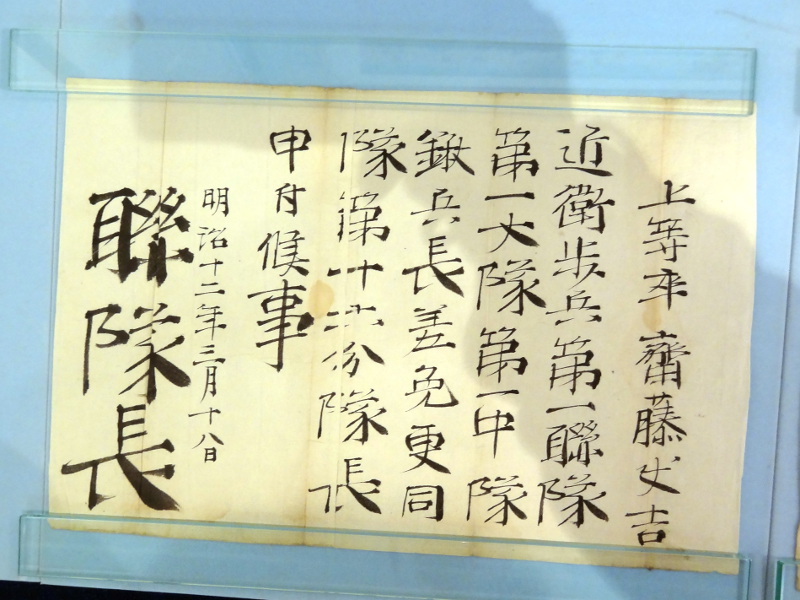 上等卒 齋藤丈吉
近衛歩兵第一聯隊
第一大隊第一中隊
鍬兵長差免更同
隊第十六分隊長
申付候事
明治十二年三月十八日
聯隊長